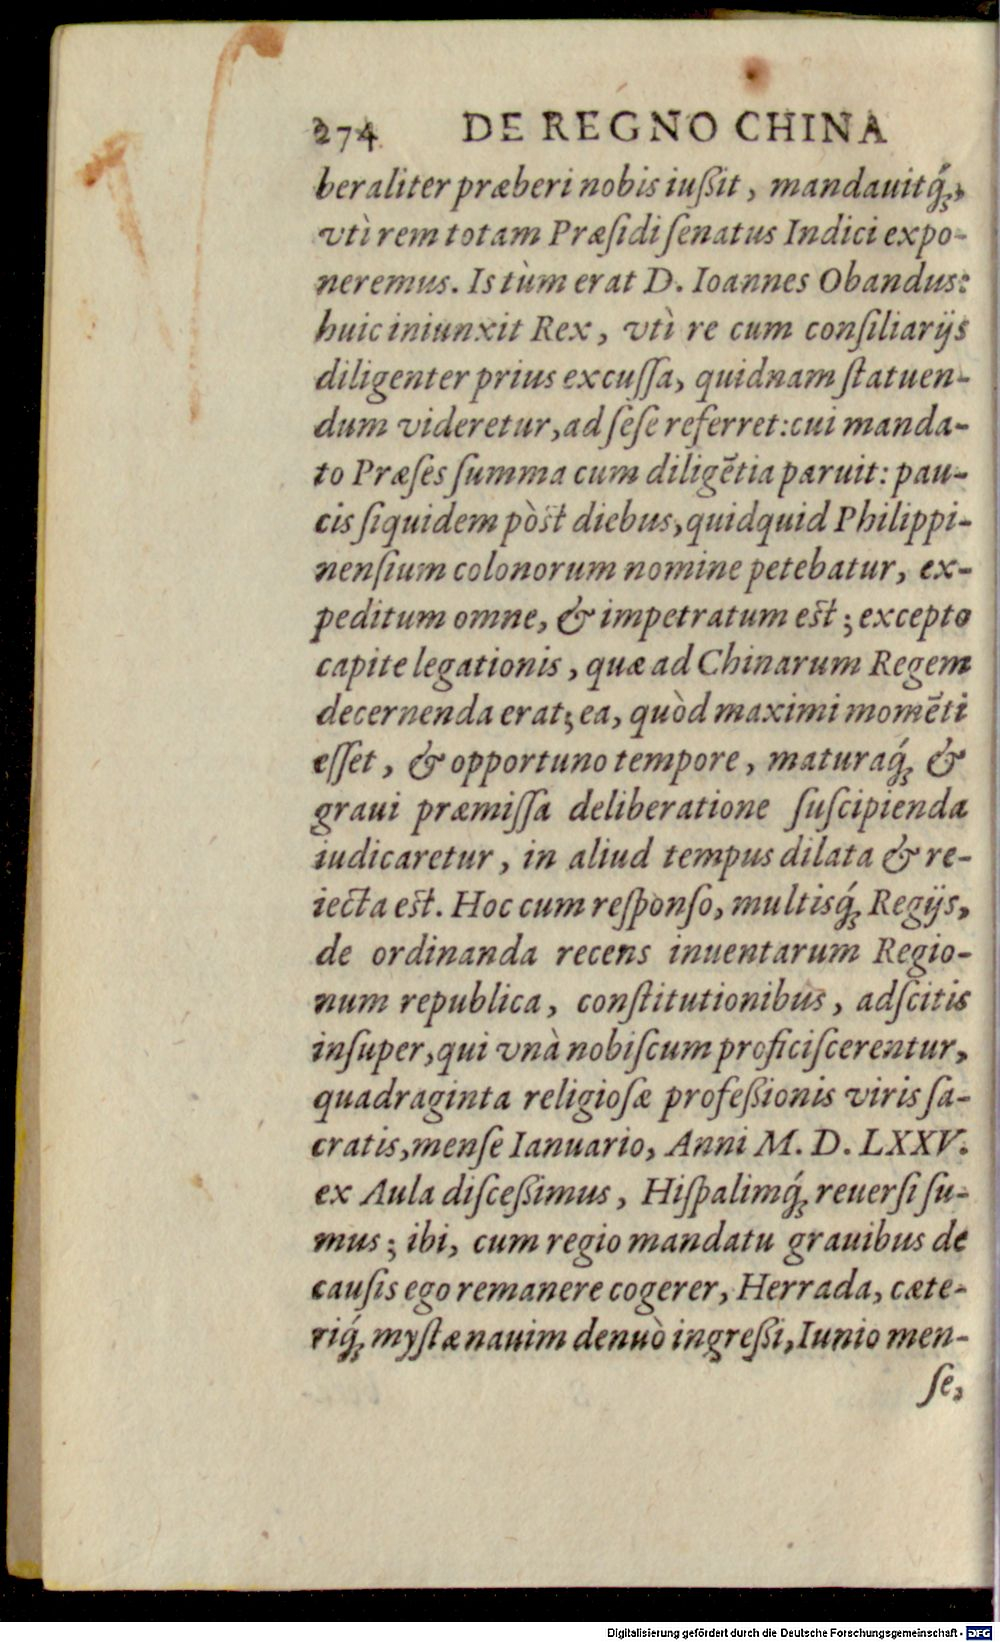 274 DE REGNO CHINA
beraliter præberi nobis iußit, mandauitq́ꝫ,
vtì rem totam Præſidi ſenatus Indici expo-
neremus. Is tùm erat D. Ioannes Obandus:
huic iniunxit Rex, vtì re cum conſiliarijs
diligenter prius excuſſa, quidnam ſtatuen-
dum videretur, ad ſeſe referret: cui manda-
to Præſes ſumma cum diligẽtia paruit: pau-
cis ſiquidem pòst diebus, quidquid Philippi-
nenſium colonorum nomine petebatur, ex-
peditum omne, & impetratum est; excepto
capite legationis, quæ ad Chinarum Regem
decernenda erat; ea, quòd maximi momẽti
eſſet, & opportuno tempore, maturaq́ꝫ &
graui præmiſſa deliberatione ſuſcipienda
iudicaretur, in aliud tempus dilata & re-
iecta est. Hoc cum reſponſo, multisq́ꝫ Regijs,
de ordinanda recens inuentarum Regio-
num republica, conſtitutionibus, adſcitis
inſuper, qui vnà nobiſcum proficiſcerentur,
quadraginta religioſæ profeßionis viris ſa-
cratis, menſe Ianuario, Anni M. D. LXXV.
ex Aula diſceßimus, Hiſpalimq́ꝫ reuerſi ſu-
mus; ibi, cum regio mandatu grauibus de
cauſis ego remanere cogerer, Herrada, cæte-
riq́ꝫ myſtæ nauim denuò ingreßi, Iunio men-
ſe,
Digitalisierung gefördert durch die Deutsche Forschungsgemeinschaft - DFG